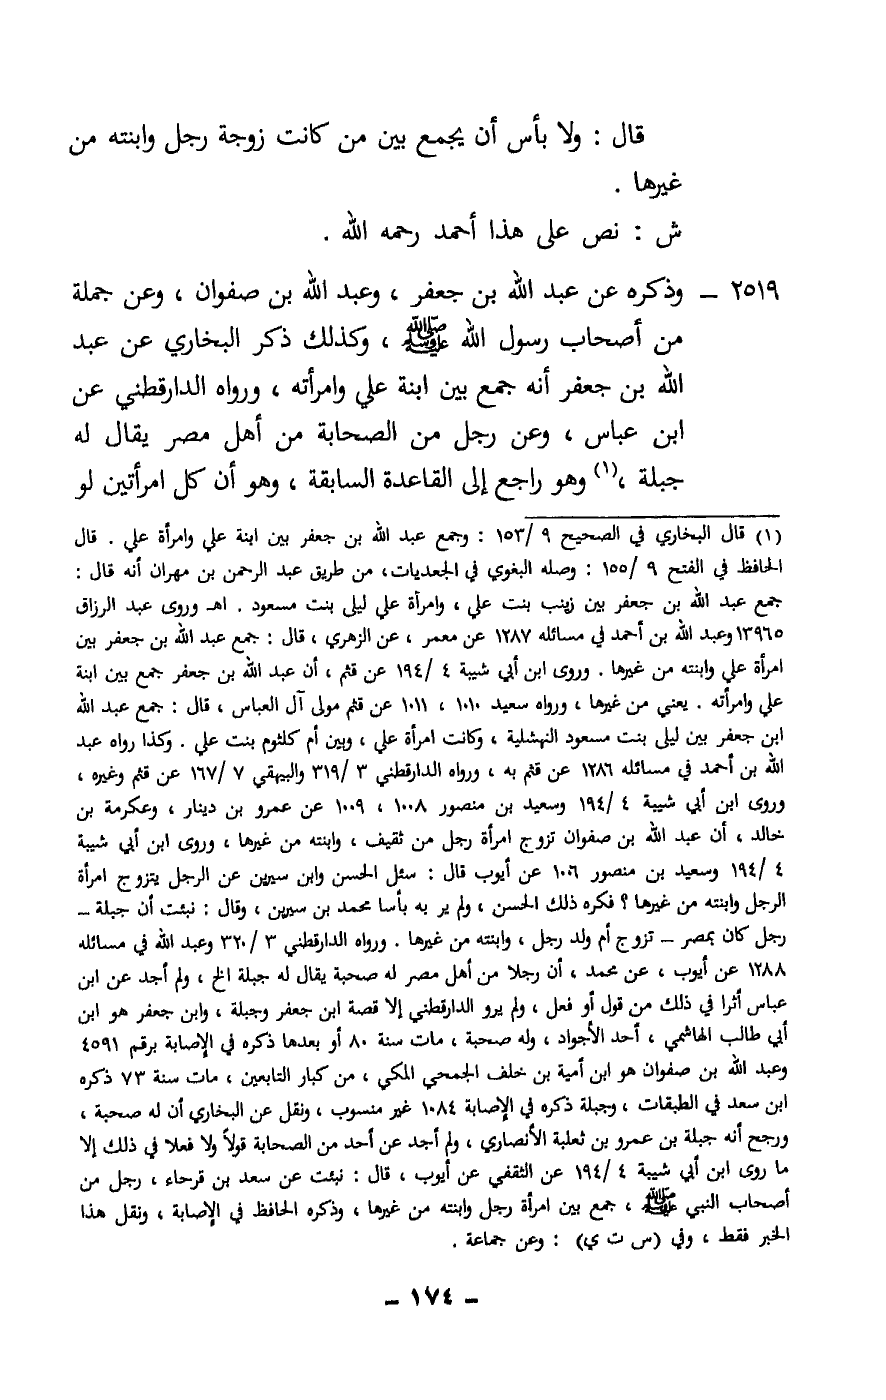 قال : ولا بأس أن يجمع بين من كانت زوجة رجل وابنته من
غيرها .
ش : نص على هذا أحمد رحمه الله .
٢٥١٩ – وذكره عن عبد الله بن جعفر ، وعبد الله بن صفوان ، وعن جملة
من أصحاب رسول الله ﷺ ، وكذلك ذكر البخاري عن عبد
الله بن جعفر أنه جمع بين ابنة علي وامرأته ، ورواه الدارقطني عن
ابن عباس ، وعن رجل من الصحابة من أهل مصر يقال له
جبلة ،(١) وهو راجع إلى القاعدة السابقة ، وهو أن كل امرأتين لو
(١) قال البخاري في الصحيح ٩ /١٥٣ : وجمع عبد الله بن جعفر بين ابنة علي وامرأة علي . قال
الحافظ في الفتح ٩ /١٥٥ : وصله البغوي في الجعديات، من طريق عبد الرحمن بن مهران أنه قال :
جمع عبد الله بن جعفر بين زينب بنت علي ، وامرأة علي ليلى بنت مسعود . اهـ وروى عبد الرزاق
١٣٩٦٥ وعبد الله بن أحمد في مسائله ١٢٨٧ عن معمر ، عن الزهري ، قال : جمع عبد الله بن جعفر بين
امرأة علي وابنته من غيرها . وروى ابن أبي شيبة ٤ /١٩٤ عن قثم ، أن عبد الله بن جعفر جمع بين ابنة
علي وامرأته . يعني من غيرها ، ورواه سعيد ١٠١٠ ، ١٠١١ عن قثم مولى آل العباس ، قال : جمع عبد الله
ابن جعفر بين ليلى بنت مسعود النهشلية ، وكانت امرأة علي ، وبين أم كلثوم بنت علي . وكذا رواه عبد
الله بن أحمد في مسائله ١٢٨٦ عن قثم به ، ورواه الدارقطني ٣ /٣١٩ والبيهقي ٧ /١٦٧ عن قثم وغيره ،
وروى ابن أبي شيبة ٤ /١٩٤ وسعيد بن منصور ١٠٠٨ ، ١٠٠٩ عن عمرو بن دينار ، وعكرمة بن
خالد ، أن عبد الله بن صفوان تزوج امرأة رجل من ثقيف ، وابنته من غيرها ، وروى ابن أبي شيبة
٤ /١٩٤ وسعيد بن منصور ١٠٠٦ عن أيوب قال : سئل الحسن وابن سيرين عن الرجل يتزوج امرأة
الرجل وابنته من غيرها ؟ فكره ذلك الحسن ، ولم ير به بأسا محمد بن سيرين ، وقال : نبئت أن جبلة –
رجل كان بمصر – تزوج أم ولد رجل ، وابنته من غيرها . ورواه الدارقطني ٣ /٣٢٠ وعبد الله في مسائله
١٢٨٨ عن أيوب ، عن محمد ، أن رجلا من أهل مصر له صحبة يقال له جبلة الخ ، ولم أجد عن ابن
عباس أثرا في ذلك من قول أو فعل ، ولم يرو الدارقطني إلا قصة ابن جعفر وجبلة ، وابن جعفر هو ابن
أبي طالب الهاشمي ، أحد الأجواد ، وله صحبة ، مات سنة ٨٠ أو بعدها ذكره في الإصابة برقم ٤٥٩١
وعبد الله بن صفوان هو ابن أمية بن خلف الجمحي المكي ، من كبار التابعين ، مات سنة ٧٣ ذكره
ابن سعد في الطبقات ، وجبلة ذكره في الإصابة ١٠٨٤ غير منسوب ، ونقل عن البخاري أن له صحبة ،
ورجح أنه جبلة بن عمرو بن ثعلبة الأنصاري ، ولم أجد عن أحد من الصحابة قولاً ولا فعلا في ذلك إلا
ما روى ابن أبي شيبة ٤ /١٩٤ عن الثقفي عن أيوب ، قال : نبئت عن سعد بن قرحاء ، رجل من
أصحاب النبي ﷺ ، جمع بين امرأة رجل وابنته من غيرها ، وذكره الحافظ في الإصابة ، ونقل هذا
الخبر فقط ، وفي (س ت ي) : وعن جماعة .
– ١٧٤ –